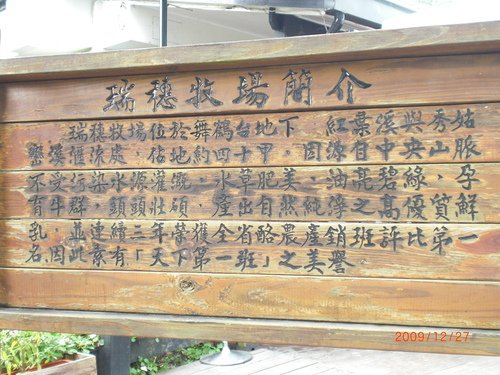 瑞穗牧場簡介
瑞穗牧場位於舞鶴台地下 紅葉溪與秀姑
巒溪滙流處 佔地約四十甲,因源自中央山脈
不受污染水源灌溉,水草肥美,油亮碧綠,孕
育牛群,頭頭壯碩,產出自然純淳之高優質鮮
乳,並連續三年榮獲全省酪農產銷班評比第一
名,因此素有「天下第一班」之美譽
2009/12/27